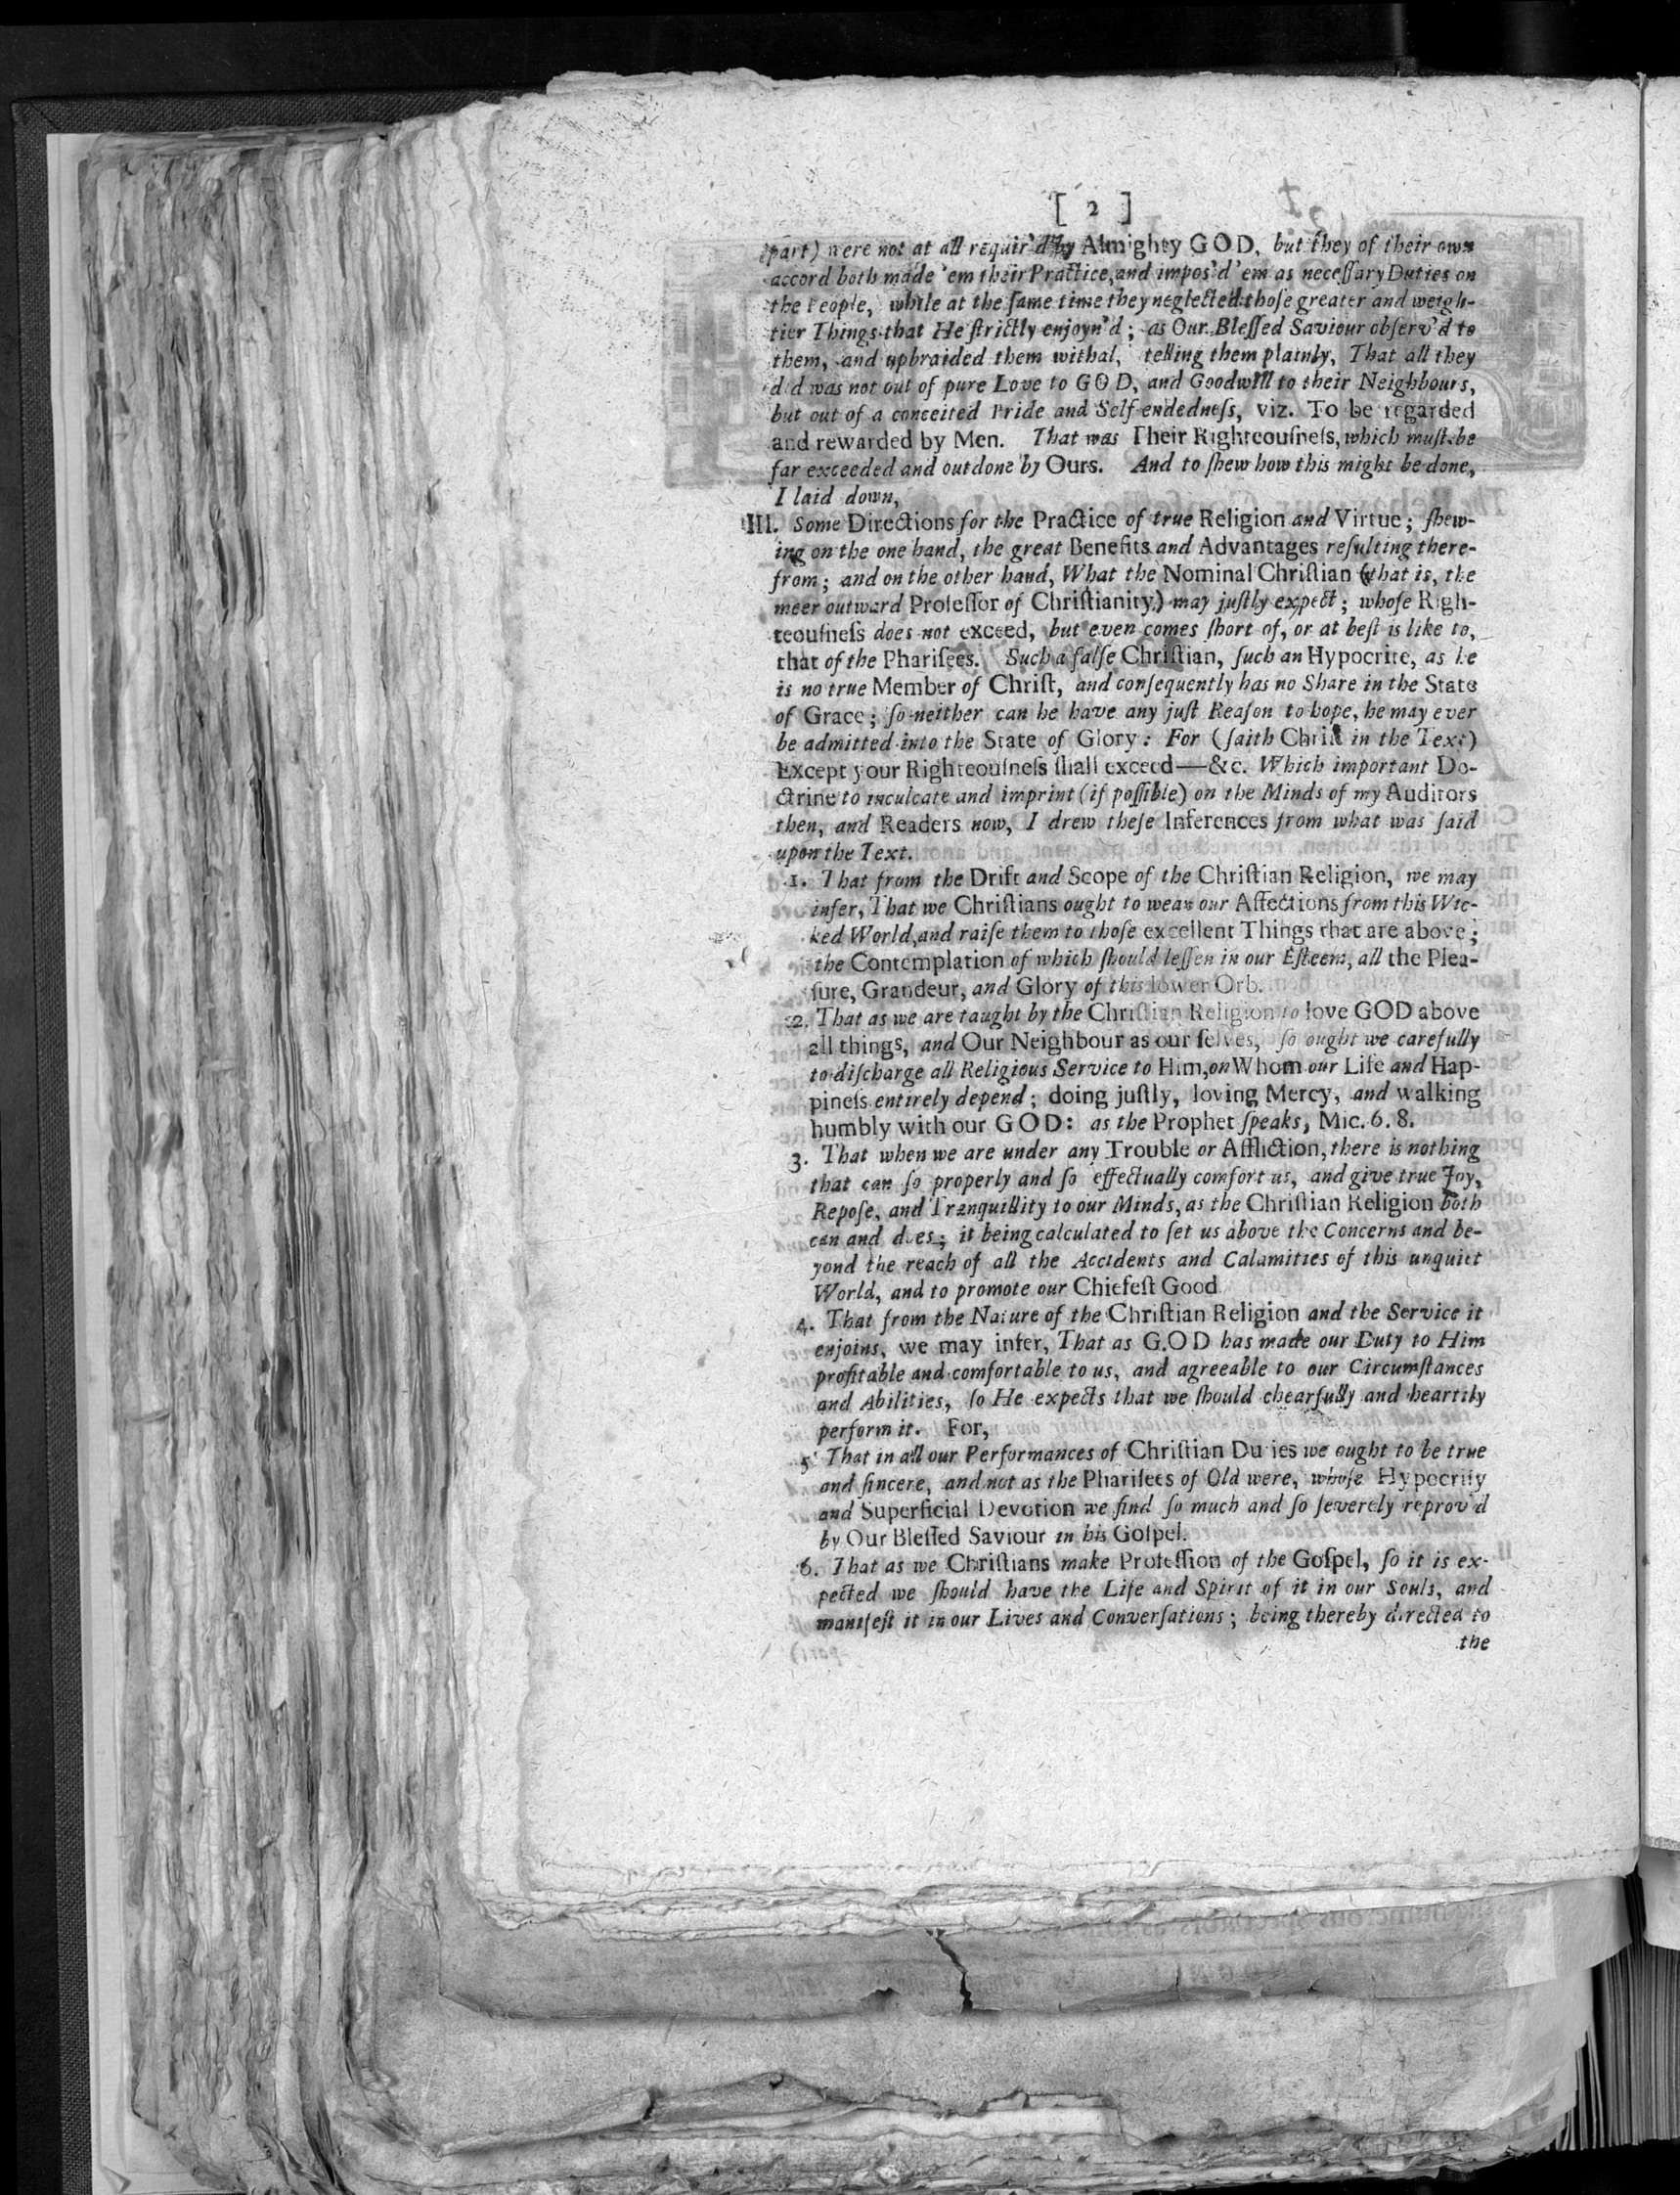 [ 2 ]
part) were not at all requir'd by Almighty GOD, but they of their own
accord both made 'em their Practice, and impos'd 'em as neceſſary Duties on
the People, while at the ſame time they neglected thoſe greater and weigh-
tier Things that He ſtrictly enjoyn'd; as Our Bleſſed Saviour obſerv'd to
them, and upbraided them withal, telling them plainly, That all they
did was not out of pure Love to GOD, and Goodwill to their Neighbours,
but out of a conceited Pride and Self-endedneſs, viz. To be regarded
and rewarded by Men. That was Their Righteouſneſs, which muſt be
far exceeded and outdone by Ours. And to ſhew how this might be done,
I laid down,
III. Some Directions for the Practice of true Religion and Virtue; ſhew-
ing on the one hand, the great Benefits and Advantages reſulting there-
from; and on the other hand, What the Nominal Chriſtian (that is, the
meer outward Profeſſor of Chriſtianity) may juſtly expect; whoſe Righ-
teouſneſs does not exceed, but even comes ſhort of, or at beſt is like to,
that of the Phariſees. Such a falſe Chriſtian, ſuch an Hypocrite, as he
is no true Member of Chriſt, and conſequently has no Share in the State
of Grace; ſo neither can he have any juſt Reaſon to hope, he may ever
be admitted into the State of Glory: For (ſaith Chriſt in the Text)
Except your Righteouſneſs ſhall exceed—&c. Which important Do-
ctrine to inculcate and imprint (if poſſible) on the Minds of my Auditors
then, and Readers now, I drew theſe Inferences from what was ſaid
upon the Text.
1. That from the Drift and Scope of the Chriſtian Religion, we may
infer, That we Chriſtians ought to wean our Affections from this Wic-
ked World, and raiſe them to thoſe excellent Things that are above;
the Contemplation of which ſhould leſſen in our Eſteem, all the Plea-
ſure, Grandeur, and Glory of this lower Orb.
2. That as we are taught by the Chriſtian Religion to love GOD above
all things, and Our Neighbour as our ſelves, ſo ought we carefully
to diſcharge all Religious Service to Him, on Whom our Life and Hap-
pineſs entirely depend; doing juſtly, loving Mercy, and walking
humbly with our GOD: as the Prophet ſpeaks, Mic. 6. 8.
3. That when we are under any Trouble or Affliction, there is nothing
that can ſo properly and ſo effectually comfort us, and give true Joy,
Repoſe, and Tranquillity to our Minds, as the Chriſtian Religion both
can and does; it being calculated to ſet us above the Concerns and be-
yond the reach of all the Accidents and Calamities of this unquiet
World, and to promote our Chiefeſt Good
4. That from the Nature of the Chriſtian Religion and the Service it
enjoins, we may infer, That as GOD has made our Duty to Him
profitable and comfortable to us, and agreeable to our Circumſtances
and Abilities, ſo He expects that we ſhould chearfully and heartily
perform it. For,
5. That in all our Performances of Chriſtian Duties we ought to be true
and ſincere, and not as the Phariſees of Old were, whoſe Hypocriſy
and Superficial Devotion we find ſo much and ſo ſeverely reprov'd
by Our Bleſſed Saviour in his Goſpel.
6. That as we Chriſtians make Profeſſion of the Goſpel, ſo it is ex-
pected we ſhould have the Life and Spirit of it in our Souls, and
manifeſt it in our Lives and Converſations; being thereby directed to
the